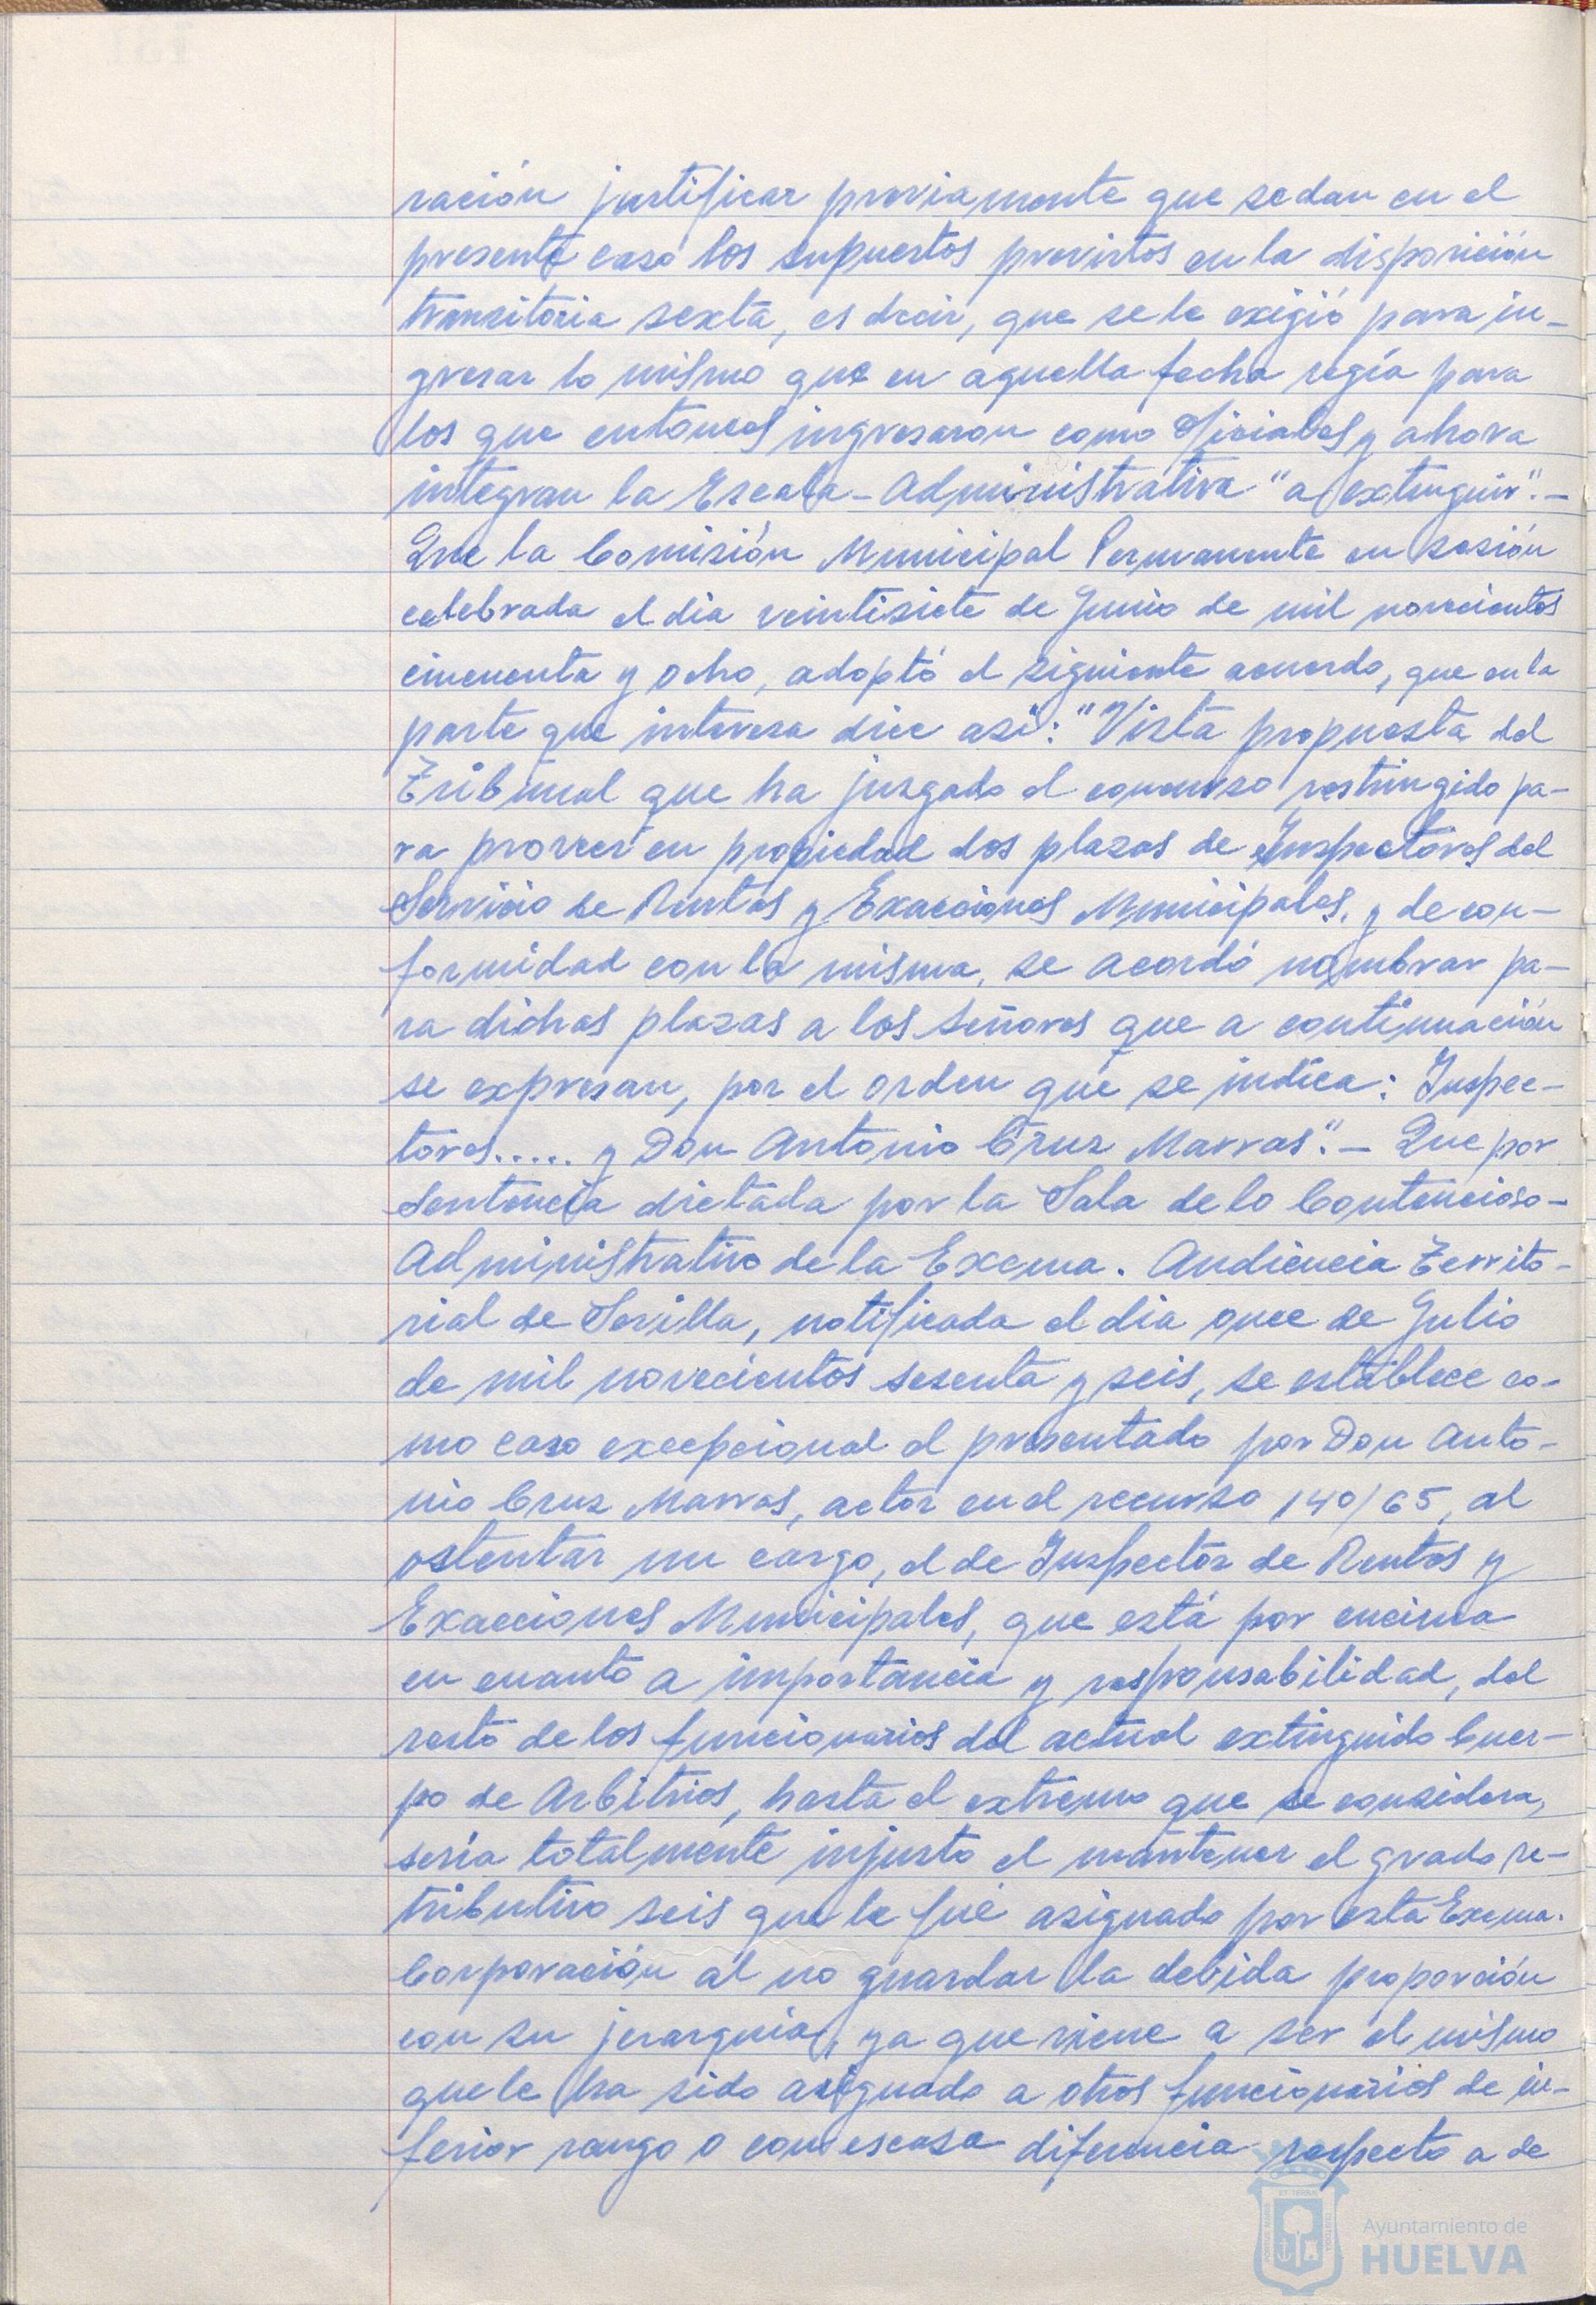 ración justificar previamente que se dan en el
presente caso los supuestos previstos en la disposición
transitoria sexta, es decir, que se le exigió para in-
gresar lo mismo que en aquella fecha regía para
los que entonces ingresaron como Oficiales y ahora
integran la Escala-Administrativa "a extinguir".-
Que la Comisión Municipal Permanente en sesión
celebrada el dia veintisiete de Junio de mil novecientos
cincuenta y ocho, adoptó el siguiente acuerdo, que en la
parte que interesa dice así: "Vista propuesta del
Tribunal que ha juzgado el concurso restringido pa-
ra proveer en propiedad dos plazas de Inspectores del
Servicio de Rentas y Exacciones Municipales, y de con-
formidad con la misma, se acordó nombrar pa-
ra dichas plazas a los Señores que a continuación
se expresan, por el orden que se indica: Inspec-
tores..... y Don Antonio Cruz Marras".- Que por
Sentencia dictada por la Sala de lo Contencioso-
Administrativo de la Excma. Audiencia Territo-
rial de Sevilla, notificada el dia once de Julio
de mil novecientos sesenta y seis, se establece co-
mo caso excepcional el presentado por Don Anto-
nio Cruz Marras, actor en el recurso 140/65, al
ostentar un cargo, el de Inspector de Rentas y
Exacciones Municipales, que está por encima
en cuanto a importancia y responsabilidad, del
resto de los funcionarios del actual extinguido Cuer-
po de Arbitrios, hasta el extremo que se considera,
sería totalmente injusto el mantener el grado re-
tributivo seis que le fué asignado por esta Excma.
Corporación al no guardar la debida proporción
con su jerarquía, ya que viene a ser el mismo
que le ha sido asignado a otros funcionarios de in-
ferior rango o con escasa diferencia respecto a de
Ayuntamiento de
HUELVA